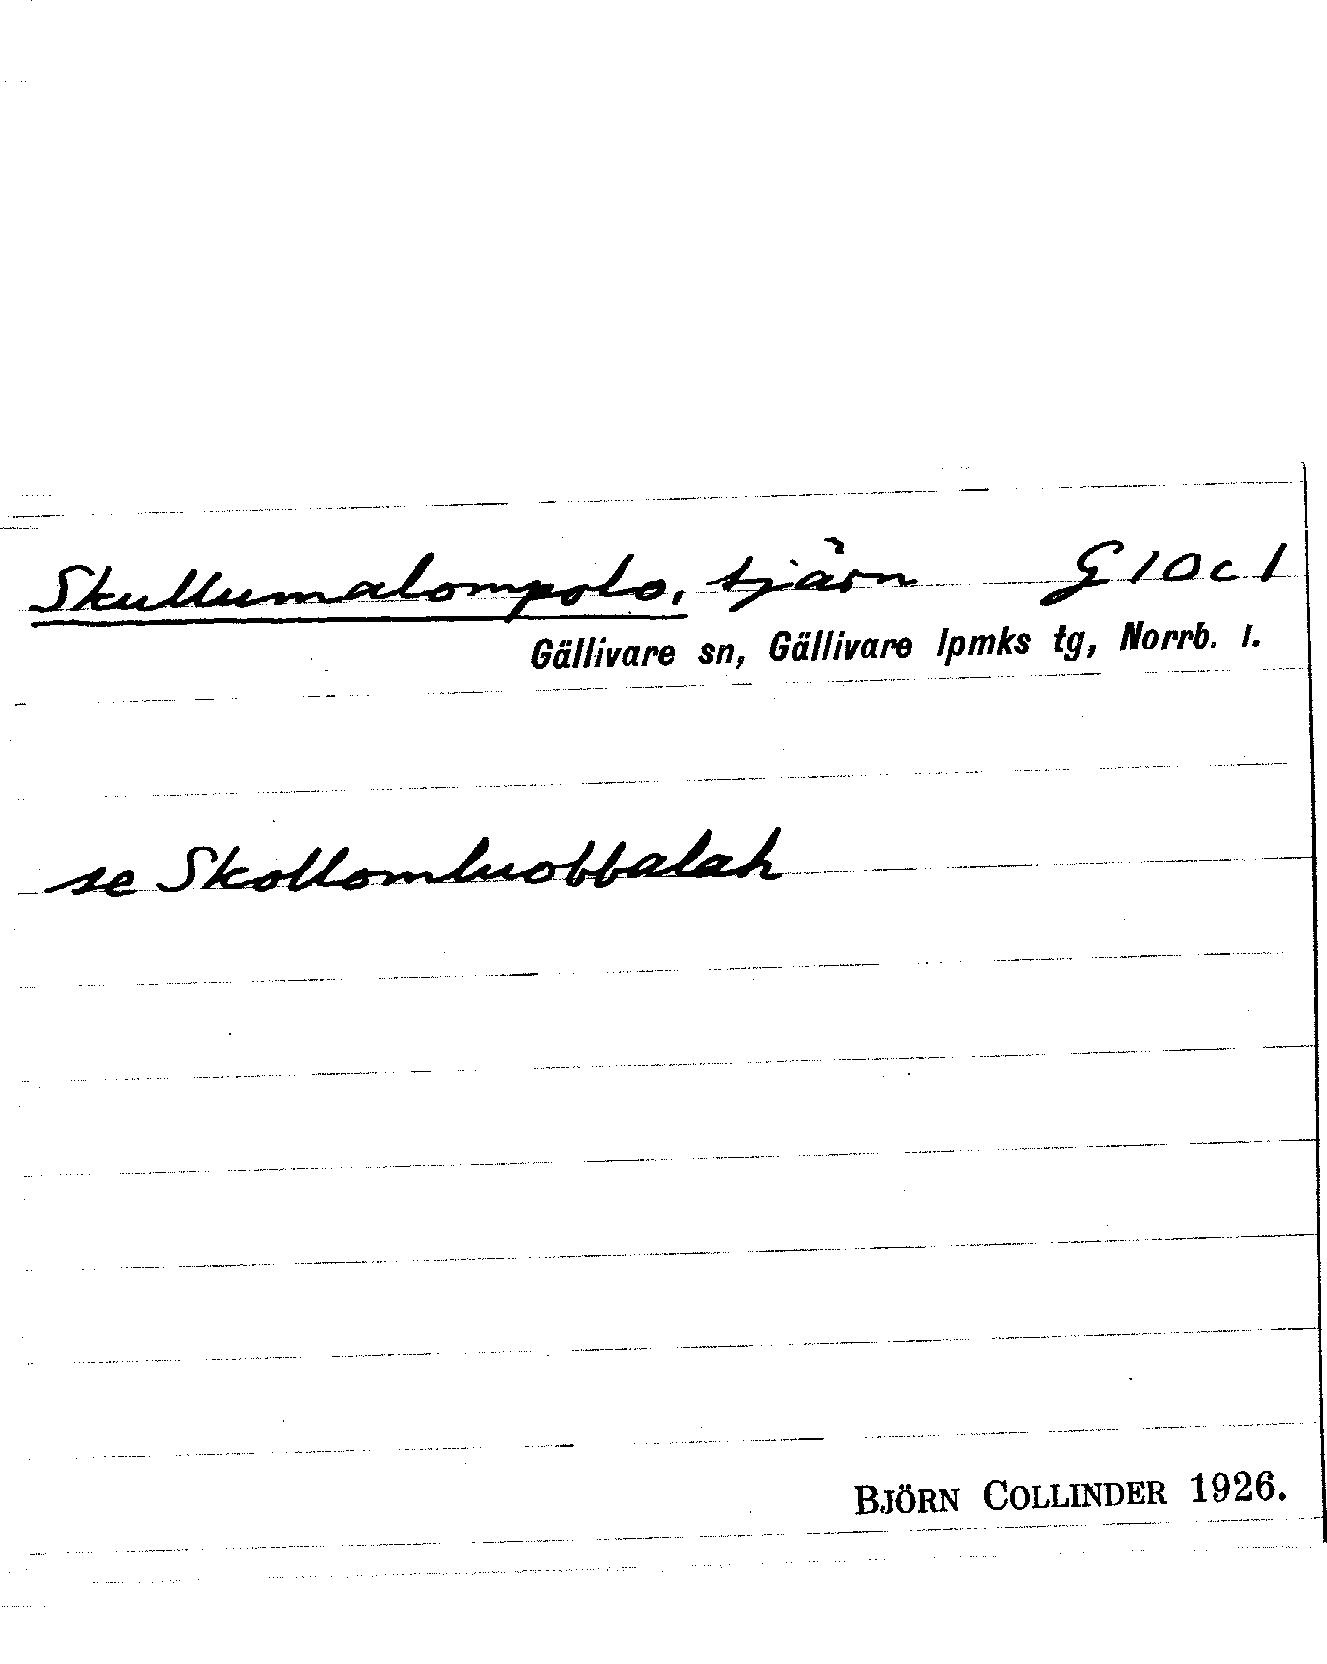 Skullumalompolo, tjärn G 10 c 1
Gällivare sn, Gällivare lpmks tg, Norrb. l.
se Skollomluobbalah
BJÖRN COLLINDER 1926.